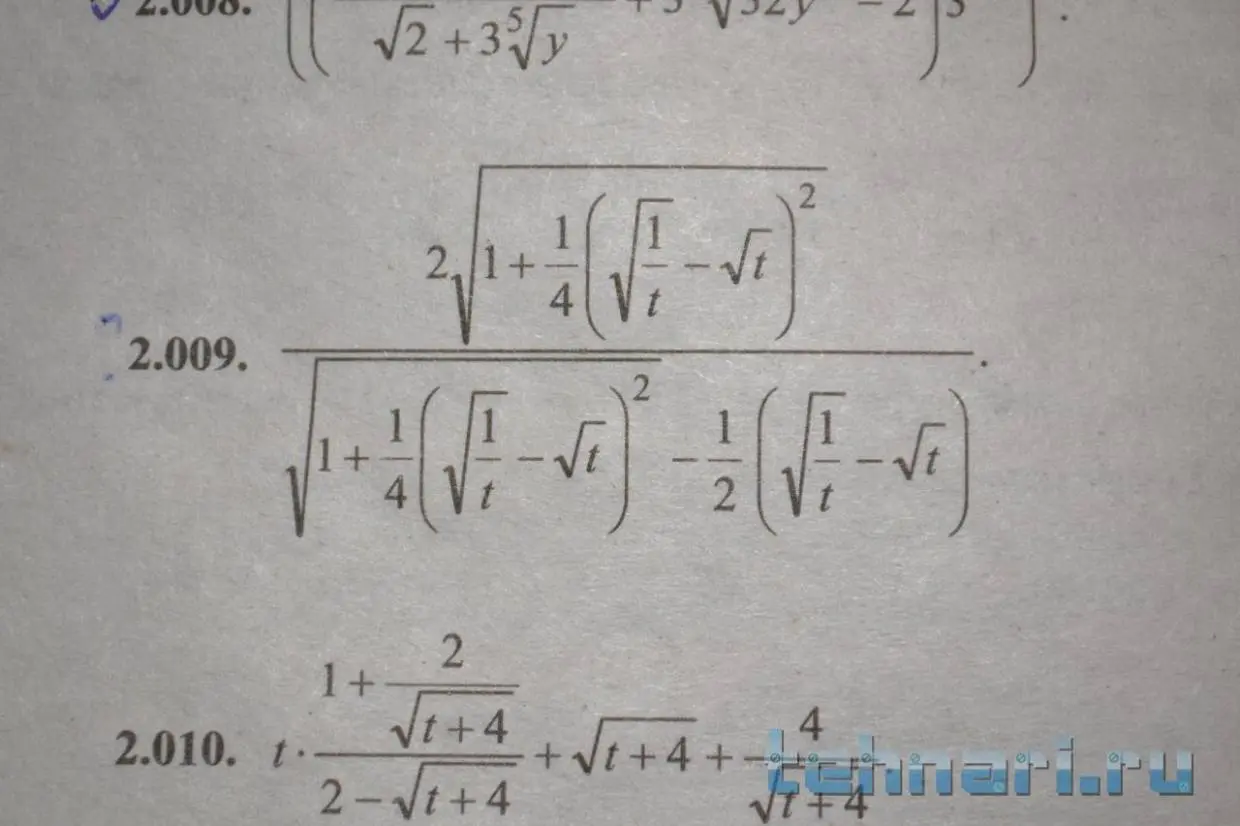 2.008. ((√2 + 3⁵√y + 3 √32y − 2) 3).
2.009. (2√(1 + 1/4(√(1/t) − √t)²)) / (√(1 + 1/4(√(1/t) − √t)²) − 1/2(√(1/t) − √t)).
2.010. t · (1 + 2/√(t + 4)) / (2 − √(t + 4)) + √(t + 4) + 4/√(t + 4).
tehnari.ru